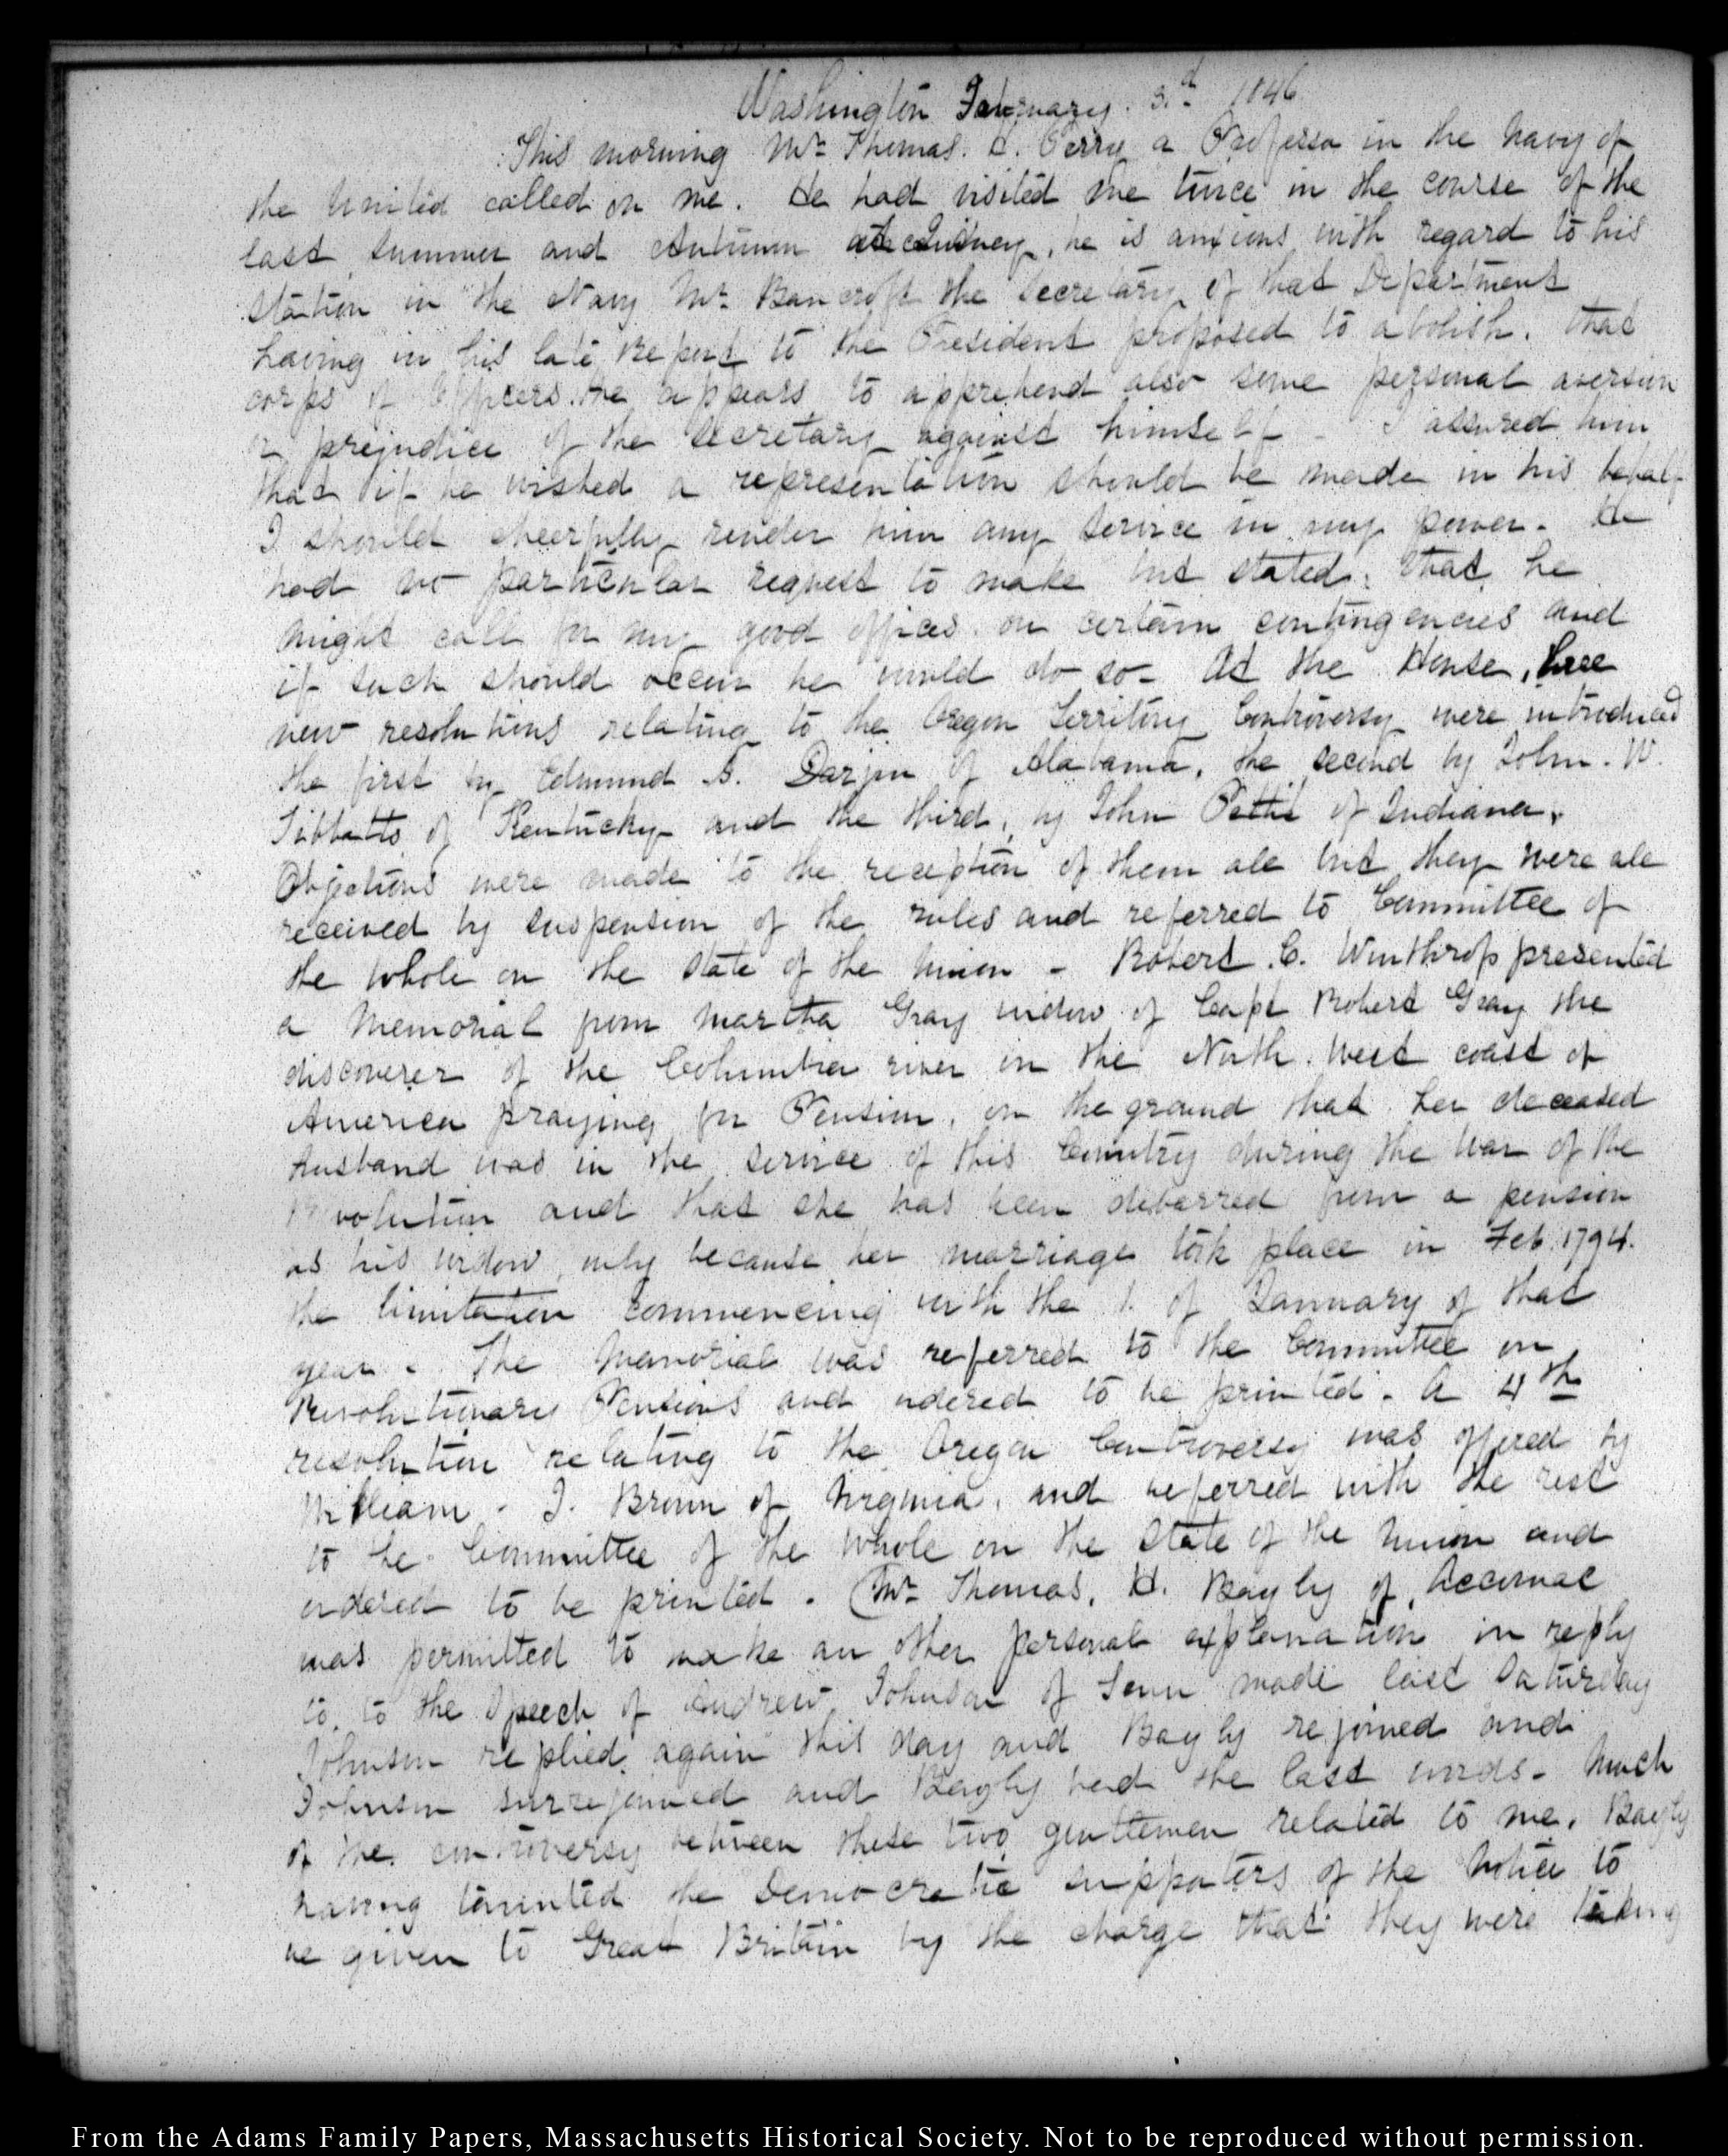 Washington February. 3.d 1846
This morning Mr Thomas. H. Perry a Professor in the Navy of
the United called on me. He had visited me twice in the course of the
last summer and Autumn at Quincy, he is anxious with regard to his
Station in the Navy Mr Bancroft the Secretary of that Department
having in his late Report to the President proposed to abolish. that
corps of Officers. He appears to apprehend also some personal aversion
or prejudice of the Secretary against himself - I assured him
that if he wished a representation should be made in his behalf
I should cheerfully render him any service in my power. He
had no particular request to make but stated, that he
might call for my good offices on certain contingencies and
if such should occur he would do so - At the House, three
new resolutions relating to the Oregon Territory Controversy were introduced
the first by Edmund S. Dargin of Alabama, the second by John. W.
Tibbatts of Kentucky and the third, by John Pettit of Indiana,
Objections were made to the reception of them all but they were all
received by suspension of the rules and referred to Committee of
the Whole on the State of the Union - Robert. C. Winthrop presented
a Memorial from Martha Gray widow of Capt Robert Gray the
discoverer of the Columbia river in the North. West coast of
America praying for Pension, on the ground that her deceased
husband was in the service of this Country during the War of the
Revolution and that she has been debarred from a pension
as his widow, only because her marriage took place in Feb. 1794.
the limitation commencing with the 1. of January of that
year - The Memorial was referred to the Committee on
Revolutionary Pensions and ordered to be printed - A 4th
resolution relating to the Oregon Controversy was offered by
William - J. Brown of Virginia, and referred with the rest
to he Committee of the Whole on the State of the Union and
ordered to be printed. Mr Thomas. H. Bayly of Accomac
was permitted to make an other personal explanation in reply
to. to the Speech of Andrew Johnson of Tenn made last Saturday
Johnson replied again this day and Bayly rejoined and
Johnson surrejoined and Bayly had the last words - Much
of the controversy between these two gentlemen related to me, Bayly
having taunted the Democratic supporters of the Notice to
be given to Great Britain by the charge that they were taking
From the Adams Family Papers, Massachusetts Historical Society. Not to be reproduced without permission.